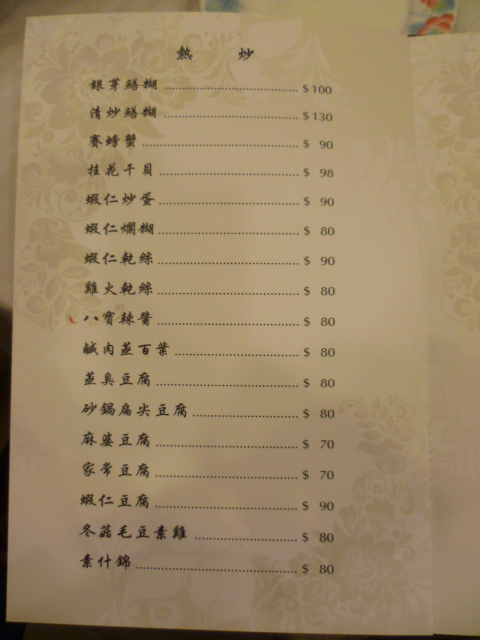 熱 炒
銀芽鱔糊 $100
清炒鱔糊 $130
賽螃蟹 $ 90
桂花干貝 $ 98
蝦仁炒蛋 $ 90
蝦仁爛糊 $ 80
蝦仁乾絲 $ 90
雞火乾絲 $ 80
八寶辣醬 $ 80
鹹肉蒸百葉 $ 80
蒸臭豆腐 $ 80
砂鍋扁尖豆腐 $ 80
麻婆豆腐 $ 70
家常豆腐 $ 70
蝦仁豆腐 $ 90
冬菇毛豆素雞 $ 80
素什錦 $ 80